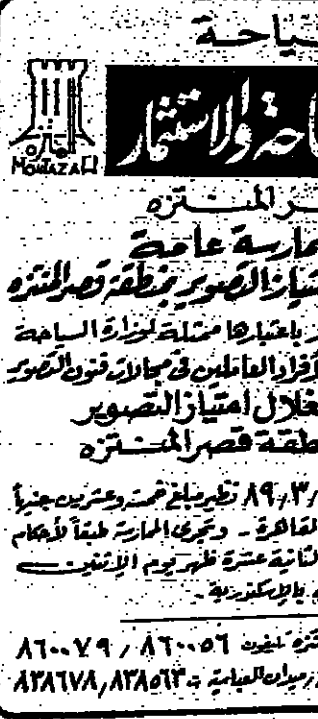 سياحة
احة والاستثمار
MONTAZAH
ـر المنــتزه
مارسة عامة
امتياز التصوير بمنطقة قصر المنتزه
باعتبارها ممثلة لوزارة السياحة
أفراد العاملين فى مجالات فنون التصوير
غلال امتياز التصوير
طقة قصر المنــتزه
/٨٩/٣ نظير مبلغ خمسة وعشرين جنيهاً
القاهرة - وتجرى الممارسة طبقاً لأحكام
الثانية عشرة ظهر يوم الإثنين
بالإسكندرية -
تزه تليفون ٨٦٠٠٥٦ / ٨٦٠٠٧٩
ميدان العباسية ت ٨٣٨٥٦٣ / ٨٣٨٦٧٨